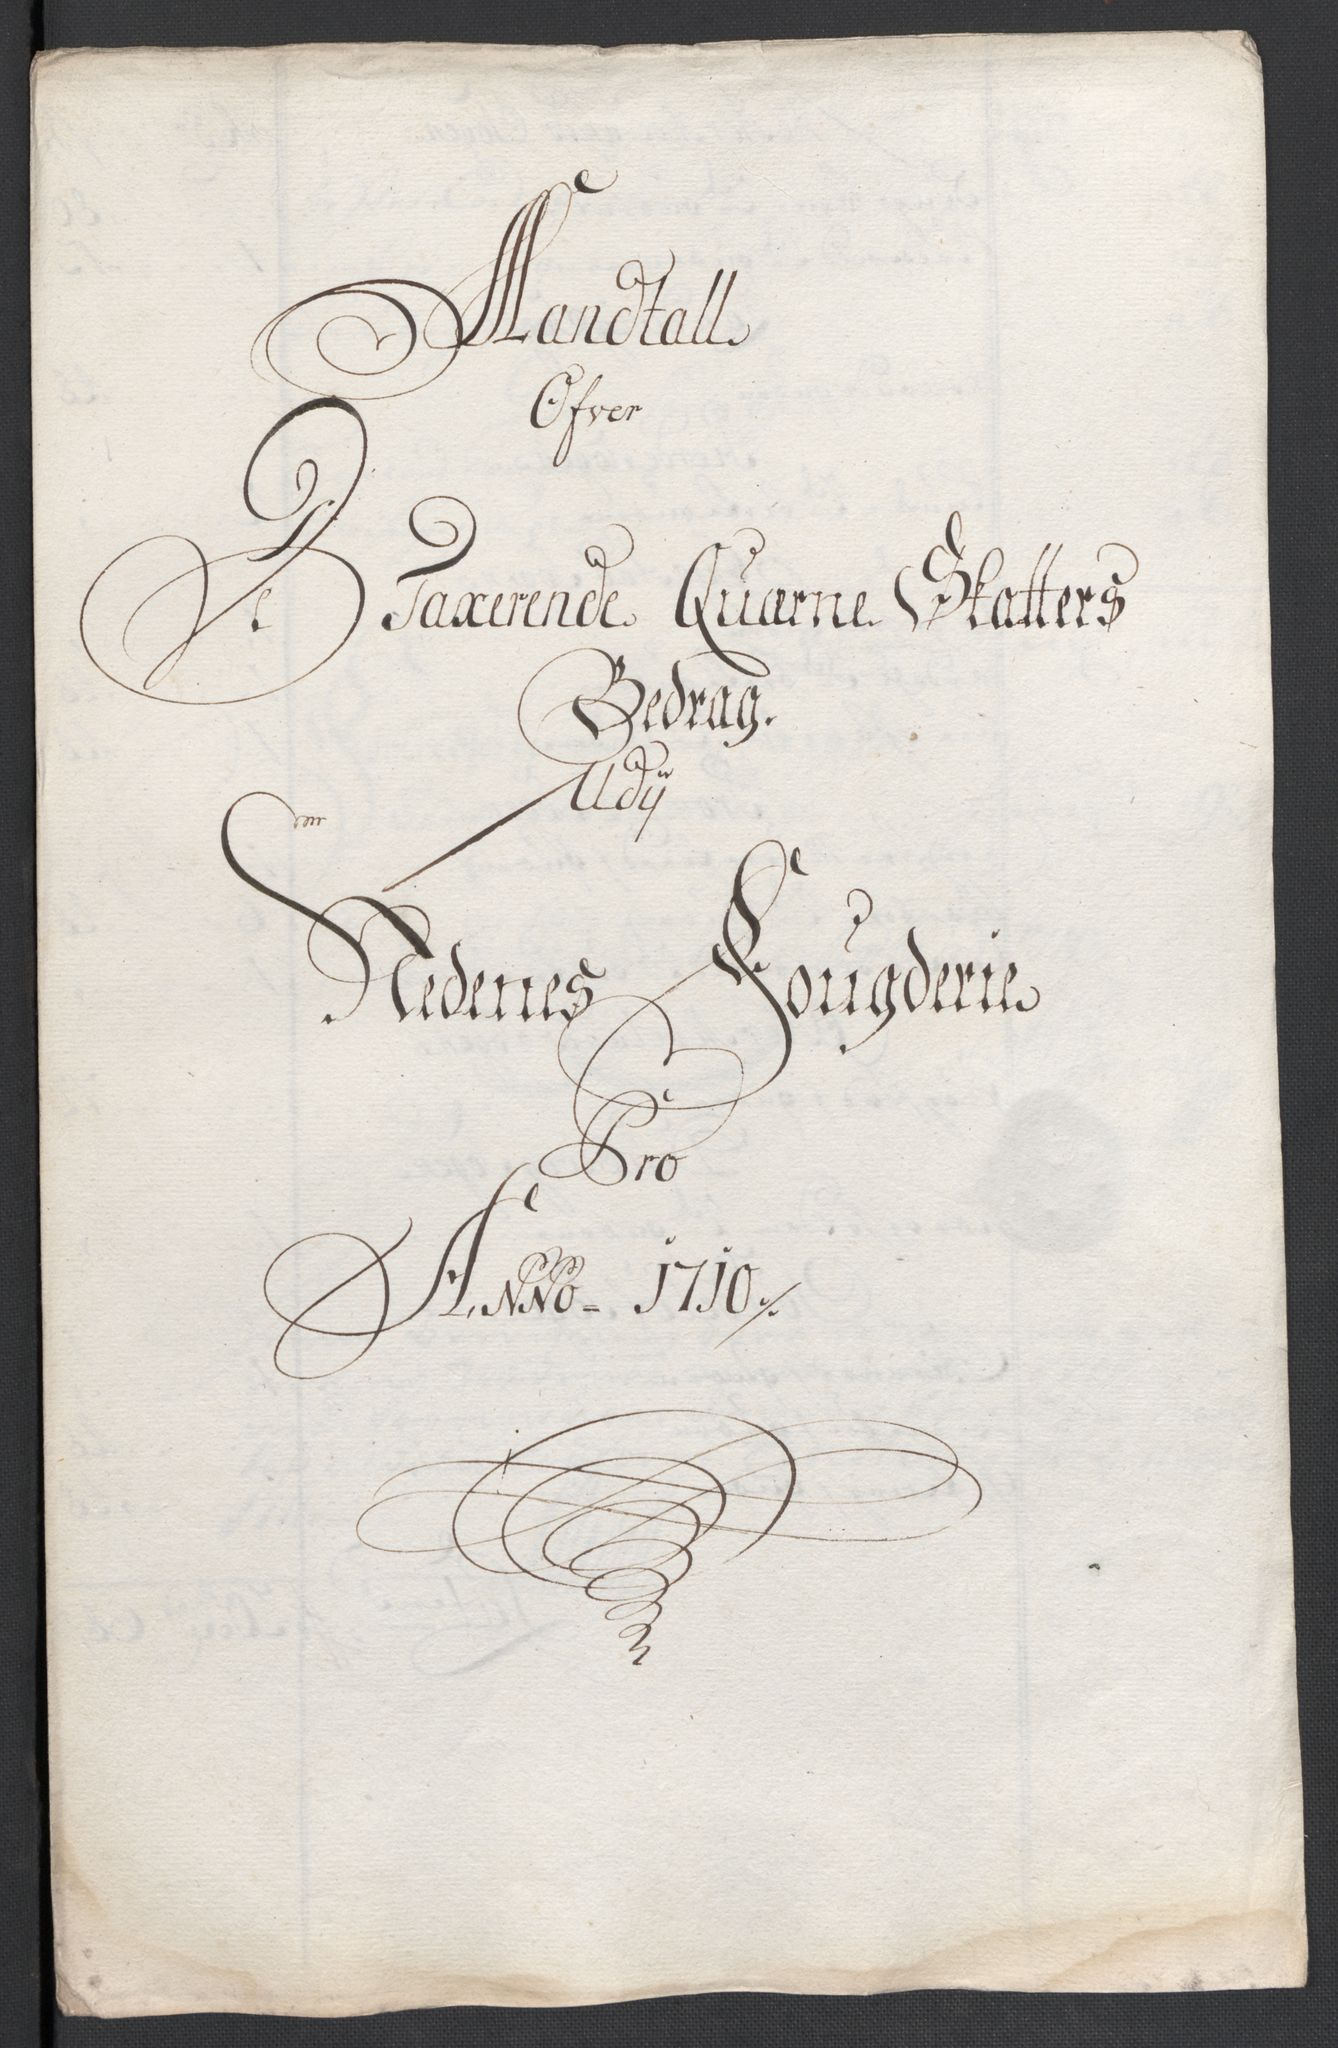 Mandtall
Ofver
De Taxerende Quærne Skatters
Bedrag.
Udÿ
Nedenes Fougderie
Pro
Anno - 1710 ./.